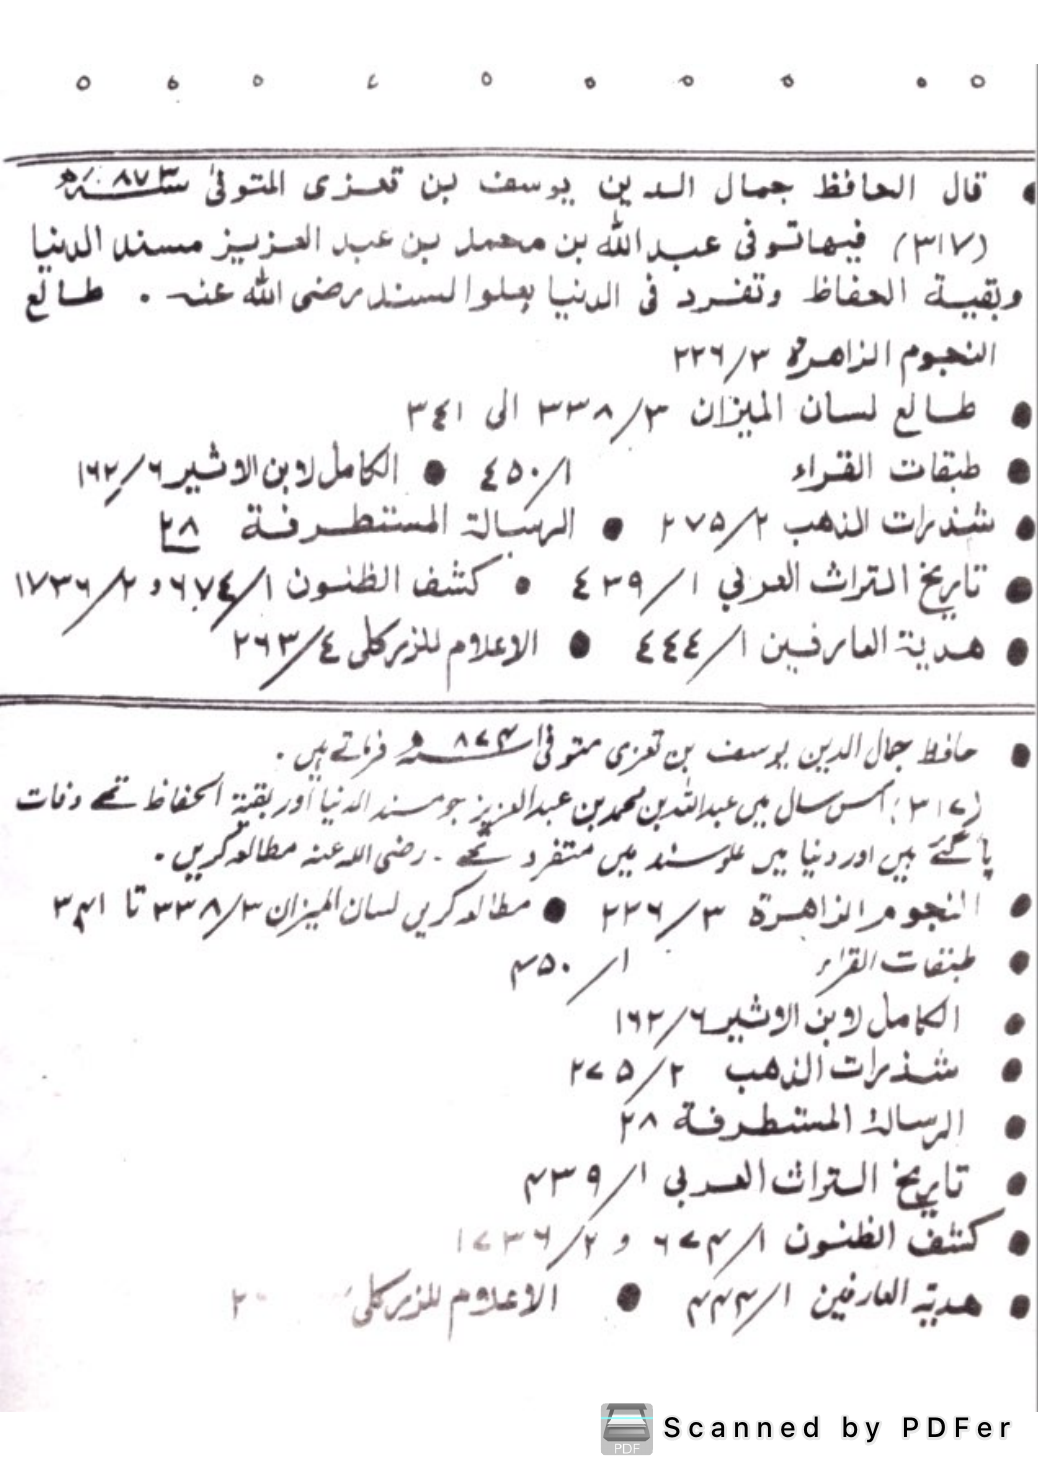 • قال الحافظ جمال الدين يوسف بن تعزى المتوفىٰ سنة ٨٧٣ھ
(٣١٧) فيها توفى عبد الله بن محمد بن عبد العزيز مسند الدنيا
وبقية الحفاظ وتفرد فى الدنيا بعلو السند رضى الله عنه . طالع
النجوم الزاهرة ٣/٢٢٦
• طالع لسان الميزان ٣/٣٣٨ الى ٣٤١
• طبقات القراء ١/٤٥٠ • الكامل لابن الاثير ٦/١٦٢
• شذرات الذهب ٢/٢٧٥ • الرسالة المستطرفة ٢٨
• تاريخ التراث العربي ١/٤٣٩ • كشف الظنون ١/٦٧٤ و ٢/١٧٣٦
• هدية العارفين ١/٤٤٤ • الاعلام للزركلى ٤/٢٦٣
• حافظ جمال الدین یوسف بن تعزی متوفیٰ ۸۷۴ھ فرماتے ہیں .
(۳۱۷) اس سال میں عبداللہ بن محمد بن عبدالعزیز جو مسند الدنیا اور بقیۃ الحفاظ تھے وفات
پا گئے ہیں اور دنیا میں علو سند میں متفرد تھے ۔ رضی اللہ عنہ مطالعہ کریں .
• النجوم الزاهرة ۳/۲۲۶ • مطالعہ کریں لسان المیزان ۳/۳۳۸ تا ۳۴۱
• طبقات القراء ۱/۴۵۰
• الکامل لابن الاثیر ۶/۱۶۲
• شذرات الذهب ۲/۲۷۵
• الرسالۃ المستطرفة ۲۸
• تاریخ التراث العربی ۱/۴۳۹
• کشف الظنون ۱/۶۷۴ و ۲/۱۷۳۶
• هدیۃ العارفین ۱/۴۴۴ • الاعلام للزرکلی
PDF
Scanned by PDFer